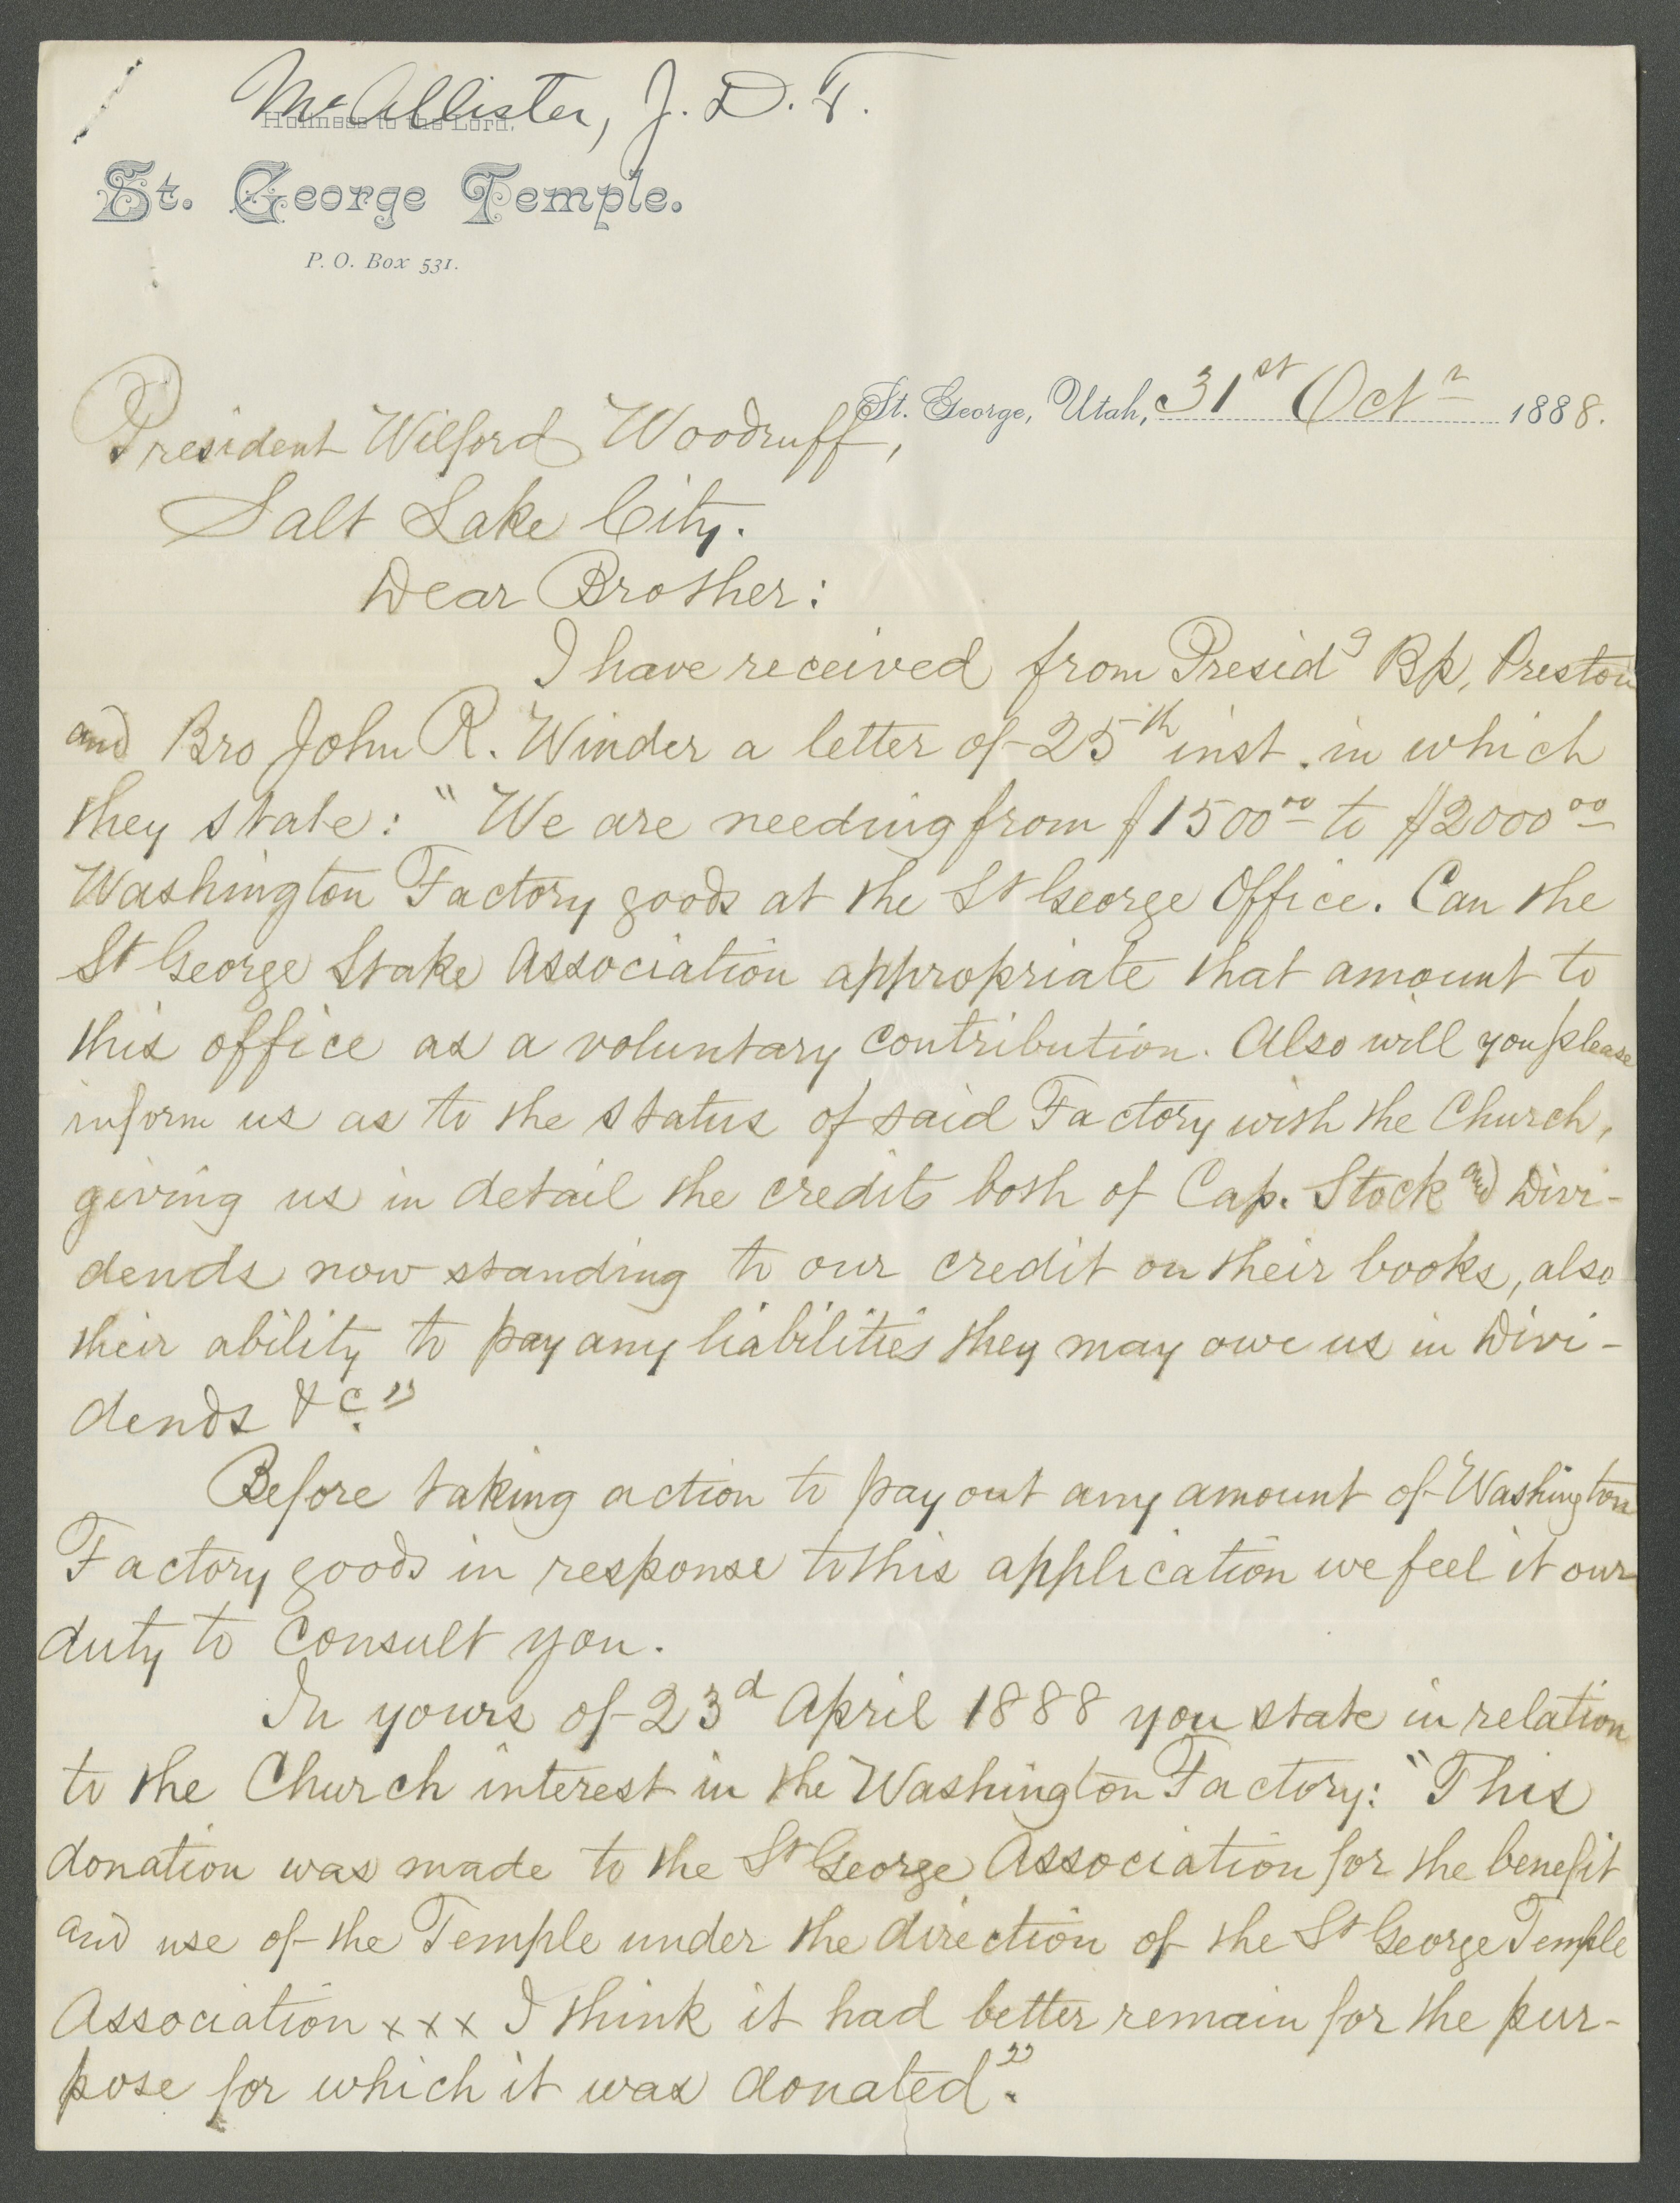 McAllister, J. D. T.
Holiness to the Lord.
St. George Temple.
P. O. Box 531.
St. George, Utah, 31st Octr 1888.
President Wilford Woodruff,
Salt Lake City.
Dear Brother:
I have received from Presidg Bp, Preston
and Bro John R. Winder a letter of 25th inst. in which
they state: "We are needing from $1500.00 to $2000.00
Washington Factory goods at the St George Office. Can the
St George Stake Association appropriate that amount to
this office as a voluntary contribution. Also will you please
inform us as to the status of said Factory with the Church,
giving us in detail the credits both of Cap. Stock and Divi-
dends now standing to our credit on their books, also
their ability to pay any liabilities they may owe us in Divi-
dends &c."
Before taking action to pay out any amount of Washington
Factory goods in response to this application we feel it our
duty to consult you.
In yours of 23d April 1888 you state in relation
to the Church interest in the Washington Factory: "This
donation was made to the St George Association for the benefit
and use of the Temple under the direction of the St George Temple
Association x x x I think it had better remain for the pur-
pose for which it was donated".